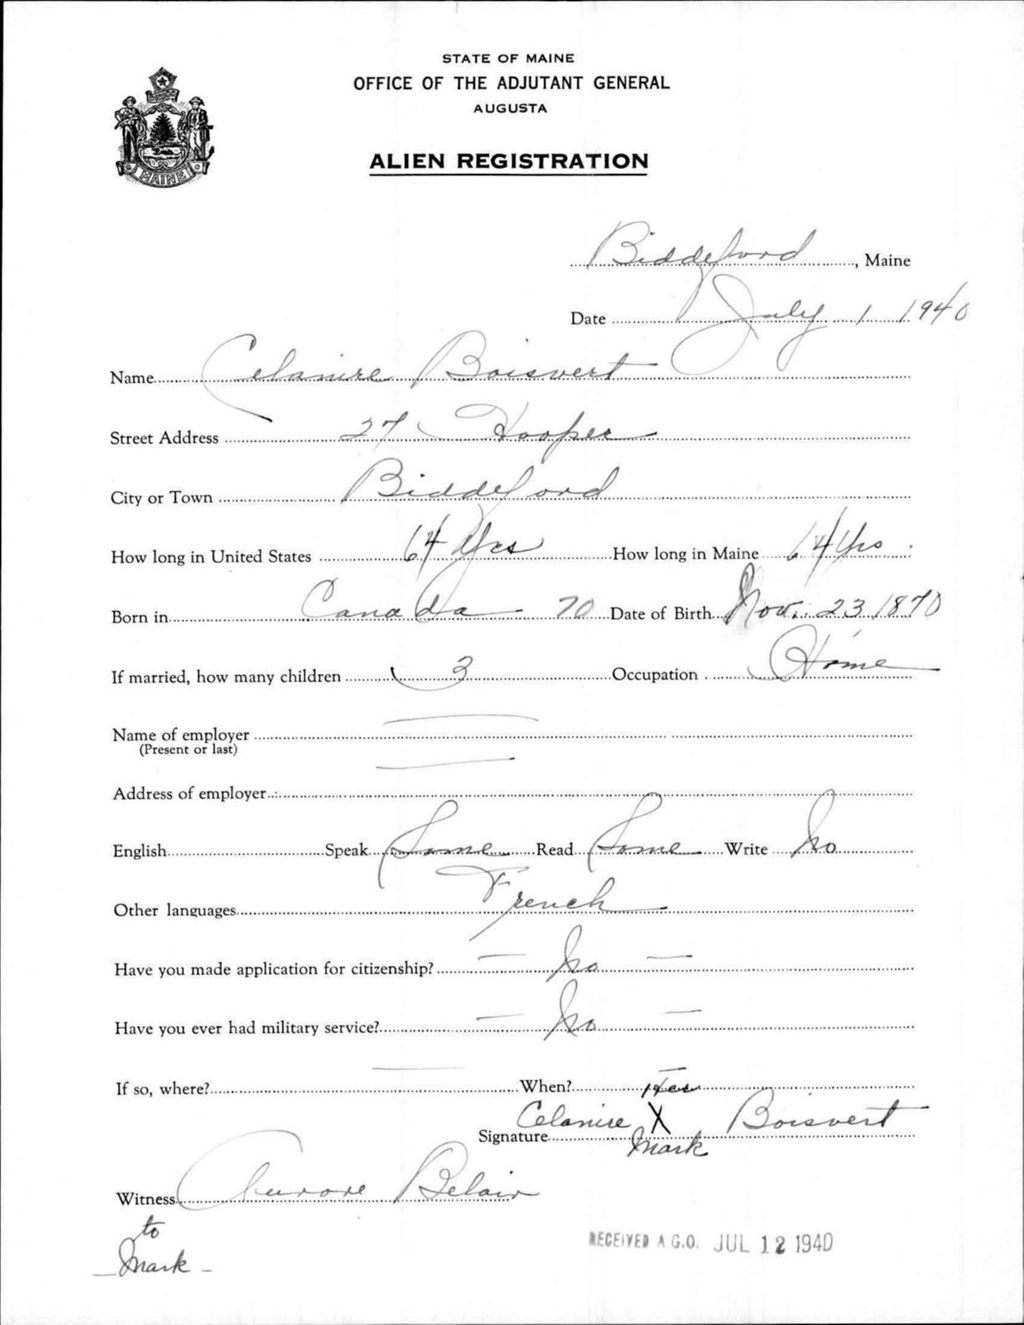 STATE OF MAINE
OFFICE OF THE ADJUTANT GENERAL
AUGUSTA
ALIEN REGISTRATION
MAINE
Biddeford, Maine
Date July 1 1940
Name Celanire Boisvert
Street Address 27 Hooper
City or Town Biddeford
How long in United States 64 Yrs How long in Maine 64 Yrs
Born in Canada 70 Date of Birth Nov. 23 1870
If married, how many children 3 Occupation Home
Name of employer
(Present or last)
Address of employer
English Speak Some Read Some Write No
Other languages French
Have you made application for citizenship? — No —
Have you ever had military service? — No —
If so, where? — When? —
Her
Signature Celanire X Boisvert
Mark
Witness Aurore Belair
to
Mark
RECEIVED A.G.O. JUL 12 1940